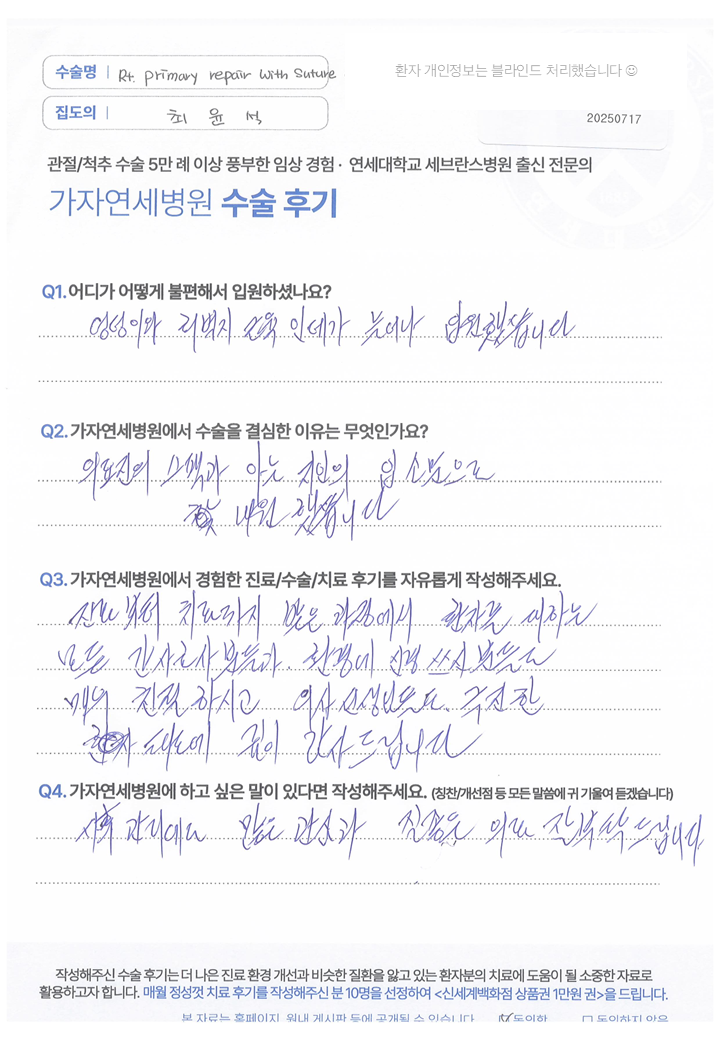 수술명 | Rt. primary repair with suture
환자 개인정보는 블라인드 처리했습니다 ☺
집도의 | 최 윤 석
20250717
관절/척추 수술 5만 례 이상 풍부한 임상 경험 · 연세대학교 세브란스병원 출신 전문의
가자연세병원 수술 후기
Q1. 어디가 어떻게 불편해서 입원하셨나요?
엉덩이와 허벅지 근육 인대가 늘어나 입원했습니다
Q2. 가자연세병원에서 수술을 결심한 이유는 무엇인가요?
의료진의 과 아는 지인의 입소문으로
내원 했습니다
Q3. 가자연세병원에서 경험한 진료/수술/치료 후기를 자유롭게 작성해주세요.
부터 치료까지 많은 과정에서 환자를 대하는
모든 간호사분들과 환경에 신경 쓰신 분들도
매우 친절하시고 의사선생님들도 극진한
환자 에 깊이 감사드립니다
Q4. 가자연세병원에 하고 싶은 말이 있다면 작성해주세요. (칭찬/개선점 등 모든 말씀에 귀 기울여 듣겠습니다)
관리에도 많은 관심과 의료 부탁드립니다
작성해주신 수술 후기는 더 나은 진료 환경 개선과 비슷한 질환을 앓고 있는 환자분의 치료에 도움이 될 소중한 자료로
활용하고자 합니다. 매월 정성껏 치료 후기를 작성해주신 분 10명을 선정하여 <신세계백화점 상품권 1만원 권>을 드립니다.
본 자료는 홈페이지, 원내 게시판 등에 공개될 수 있습니다 ☑ 동의함 □ 동의하지 않음